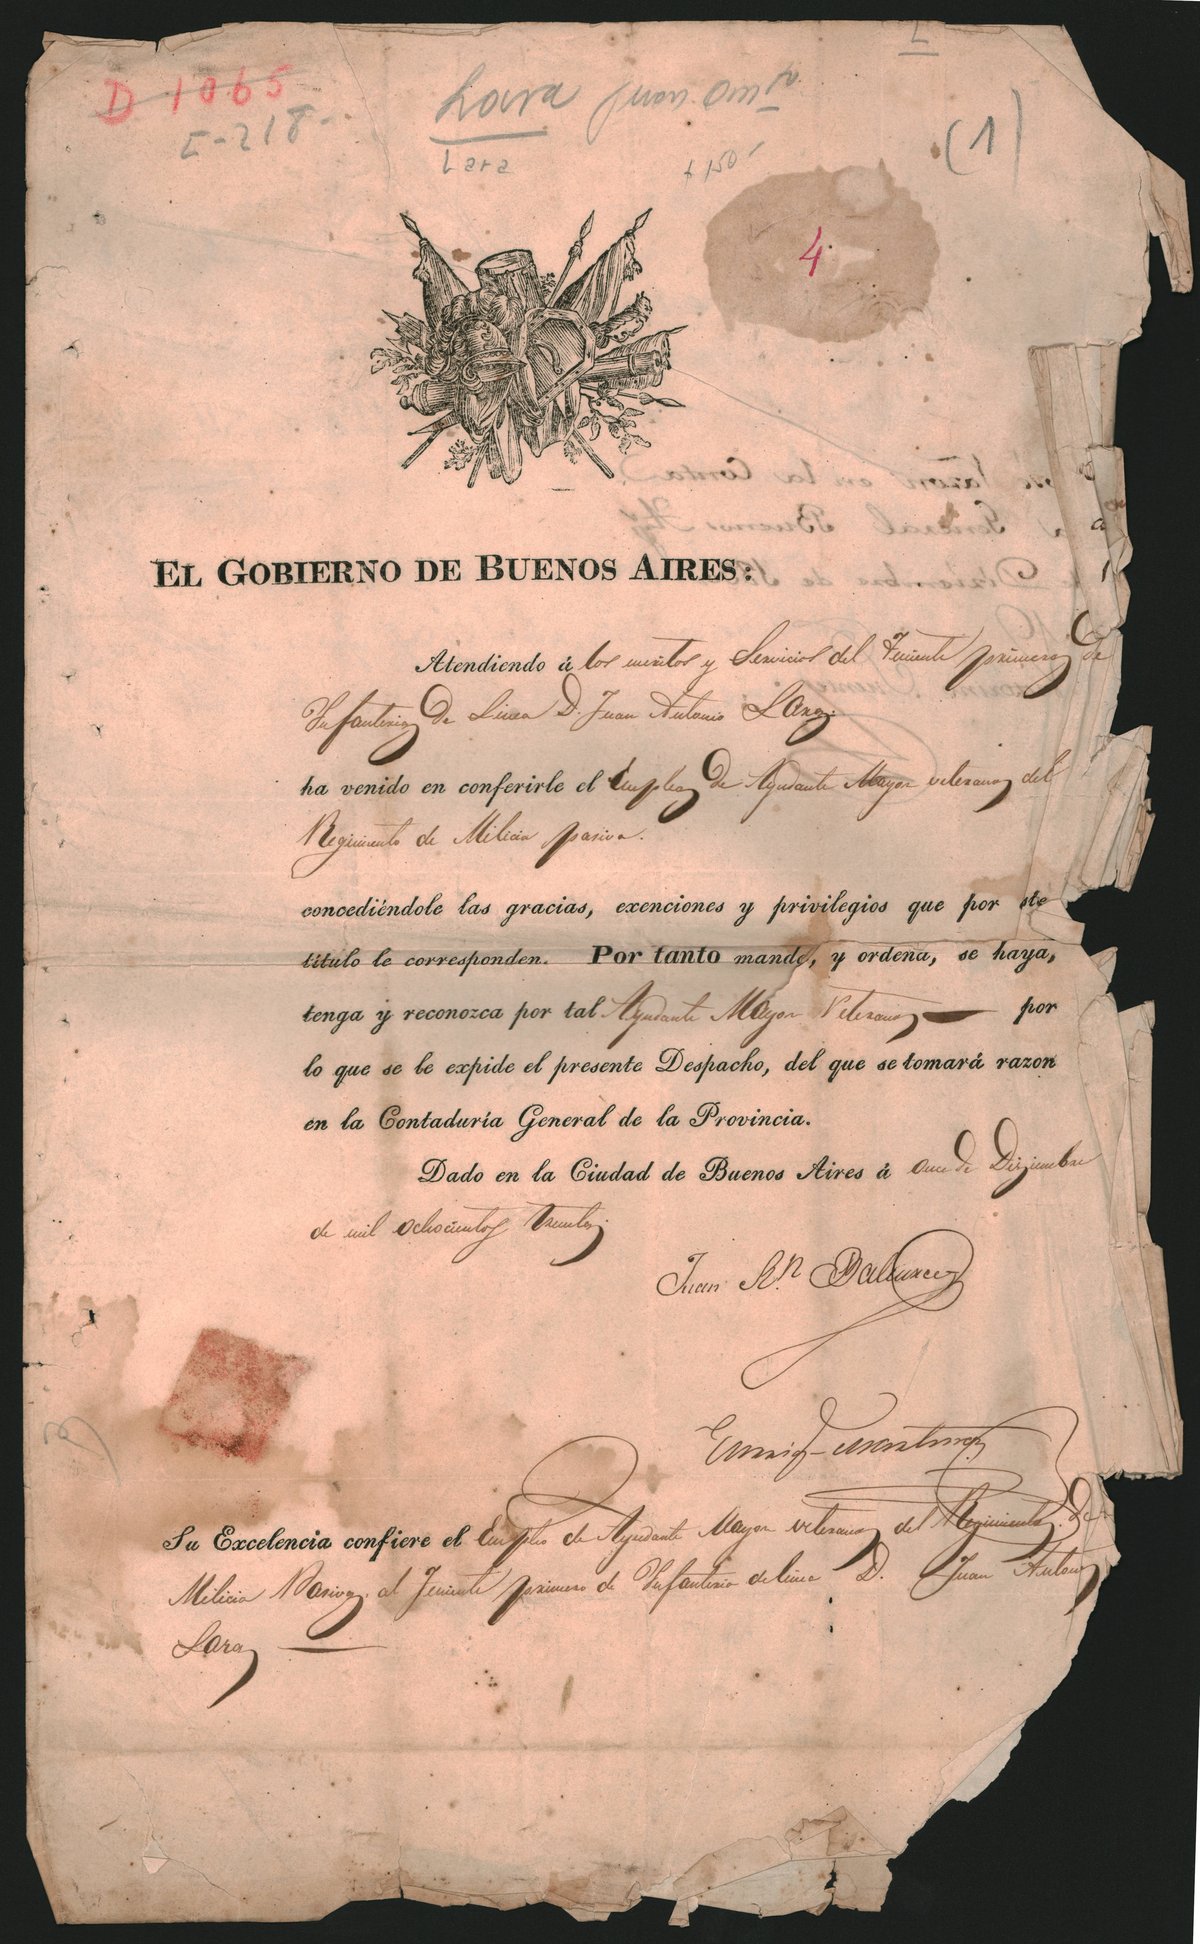 D 1065
E-218-
Lara Juan Ant.º
Lara
$ 150-
(1)
4
EL GOBIERNO DE BUENOS AIRES:
Atendiendo á los meritos y Servicios del Teniente primero de
Infanteria de Linea D. Juan Antonio Lara.
ha venido en conferirle el Empleo de Ayudante Mayor veterano del
Regimiento de Milicia pasiva.
concediéndole las gracias, exenciones y privilegios que por ste
título le corresponden. Por tanto manda, y ordena, se haya,
tenga y reconozca por tal Ayudante Mayor Veterano por
lo que se le expide el presente Despacho, del que se tomará razon
en la Contaduría General de la Provincia.
Dado en la Ciudad de Buenos Aires á once de Diziembre
de mil ochocientos treinta.
Juan R.n Balcarce
Su Excelencia confiere el Empleo de Ayudante Mayor veterano del Regimiento de
Milicia Pasiva, al Teniente primero de Infanteria de linea D. Juan Antonio
Lara